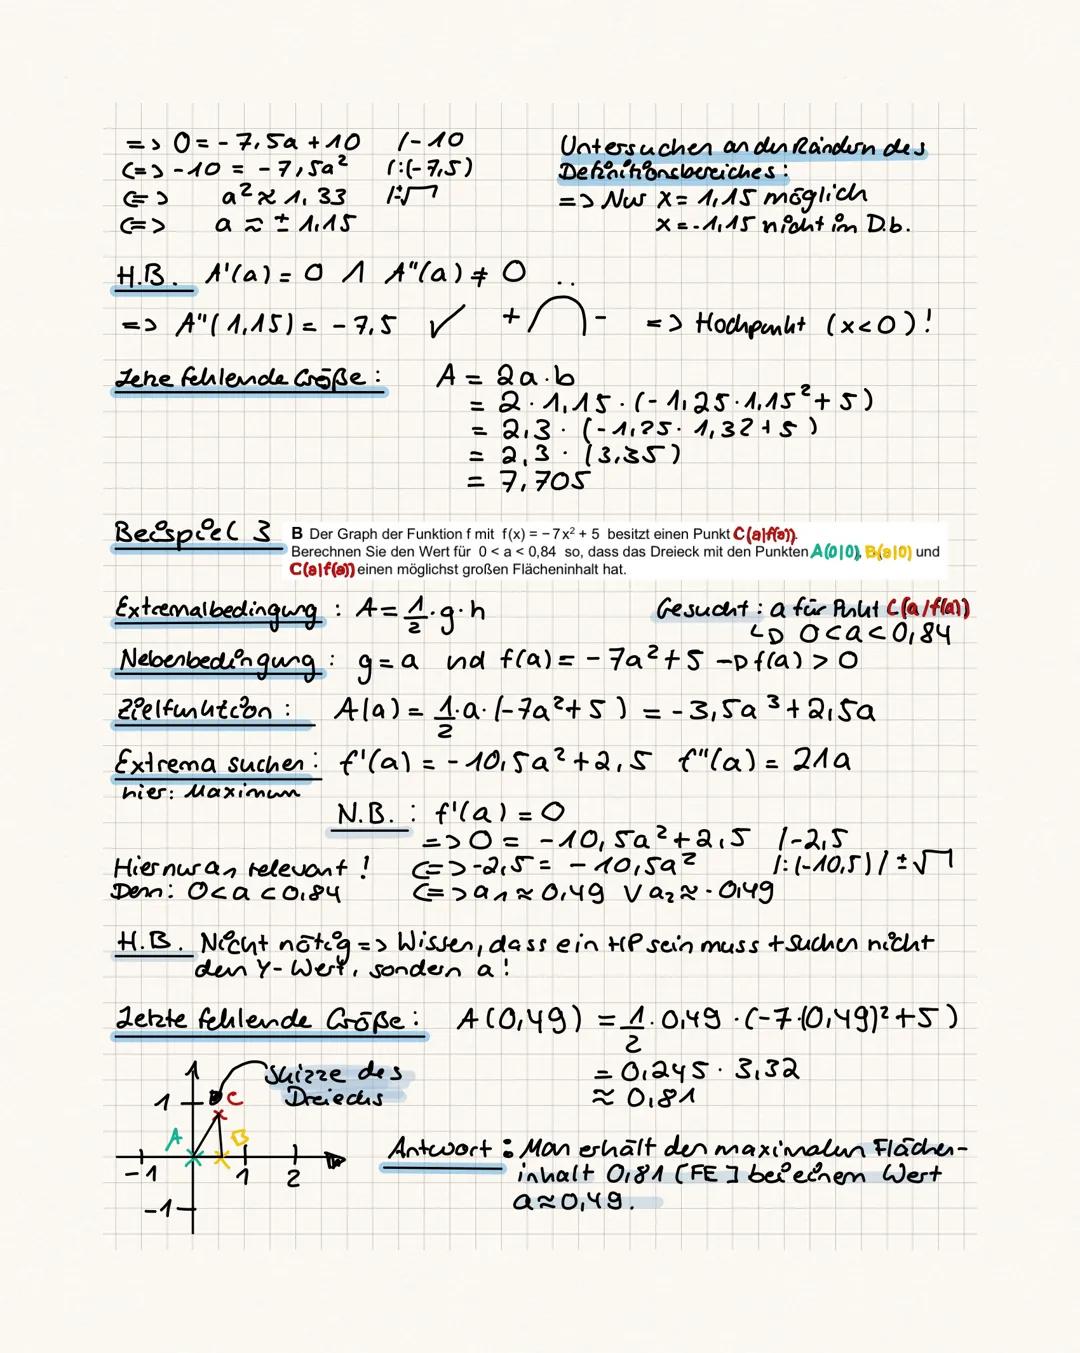 => 0 = - 7,5a + 10 /-10
<=> -10 = - 7,5a² /:(-7,5)
<=> a² ≈ 1,33 /±√
<=> a ≈ ± 1,15
Untersuchen an den Rändern des
Definitionsbereiches:
=> Nur x = 1,15 möglich
x = -1,15 nicht im D.b.
H.B. A'(a) = 0 ∧ A"(a) ≠ 0
=> A"(1,15) = - 7,5 ✓ + - => Hochpunkt (x<0)!
Letze fehlende Größe: A = 2a·b
= 2 · 1,15 · (- 1,25 · 1,15² + 5)
= 2,3 · (-1,25 · 1,32 + 5)
= 2,3 · (3,35)
= 7,705
Beispiel 3 B Der Graph der Funktion f mit f(x) = – 7x² + 5 besitzt einen Punkt C(a|f(a)).
Berechnen Sie den Wert für 0 < a < 0,84 so, dass das Dreieck mit den Punkten A(0|0), B(a|0) und
C(a|f(a)) einen möglichst großen Flächeninhalt hat.
Extremalbedingung: A = 1/2 · g · h
Gesucht: a für Punkt C(a/f(a))
↳ 0<a<0,84
Nebenbedingung: g = a und f(a) = - 7a² + 5 → f(a) > 0
Zielfunktion: A(a) = 1/2 · a · (-7a² + 5) = - 3,5a³ + 2,5a
Extrema suchen: f'(a) = - 10,5a² + 2,5 f"(a) = 21a
hier: Maximum
N.B.: f'(a) = 0
=> 0 = - 10,5a² + 2,5 /-2,5
<=> -2,5 = - 10,5a² /:(-10,5) / ±√
<=> a₁ ≈ 0,49 ∨ a₂ ≈ - 0,49
Hier nur a₁ relevant!
Denn: 0<a<0,84
H.B. Nicht nötig => Wissen, dass ein HP sein muss + suchen nicht
den Y-Wert, sondern a!
Letzte fehlende Größe: A(0,49) = 1/2 · 0,49 · (-7·(0,49)² + 5)
= 0,245 · 3,32
≈ 0,81
Skizze des
Dreiecks
1 C
A B
-1 1 2
-1
Antwort: Man erhält den maximalen Flächen-
inhalt 0,81 [FE] bei einem Wert
a ≈ 0,49.